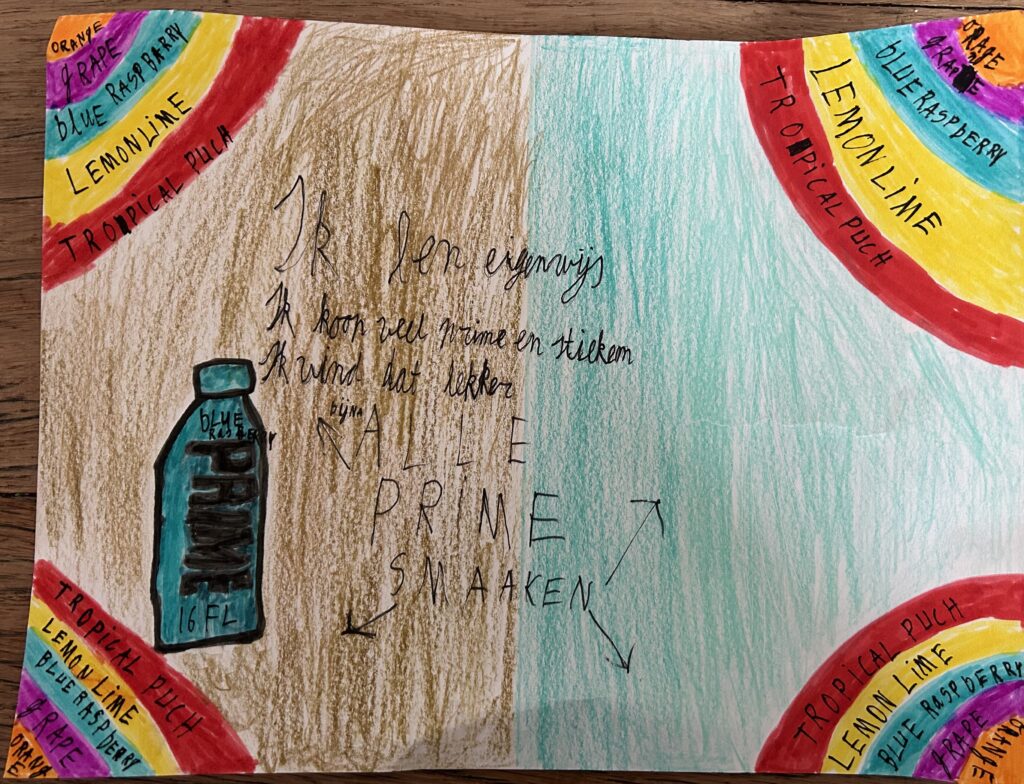 ORANGE
gRAPE
blUE RASPBARRY
LEMONLIME
TROPICAL PUCH
ORAPE
gRAPE
blUERASPbERRY
LEMONLIME
TROPICAL PUCH
Ik ben eigenwijs
Ik koop veel prime en stiekem
Ik vind dat lekker
bijNA
ALLE
PRiME
SMAAKEN
blUE
RASbERRY
PRIME
16 FL
TROPICAL PUCH
LEMON LIME
BLUE RASPbERRY
gRAPE
ORANA
TROPICAL PUCH
LEMON LIME
BLUE RASPbERRY
gRAPE
ORANGE